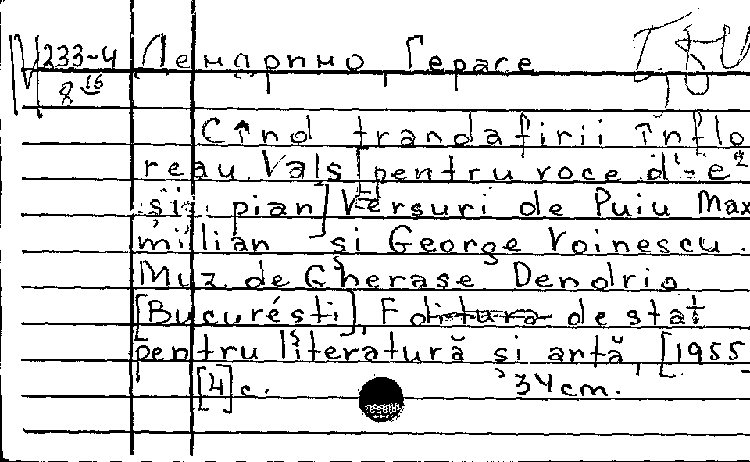 233-4 Дендрино, Герасе
8 16
Cînd trandafirii înflo
reau. Vals [pentru voce d-e²
și pian] Versuri de Puiu Max
milian și George Voinescu.
Muz. de Gherase Dendrio
[București], Editura de stat
pentru literatură și artă, [1955
[4] c. 34 cm.